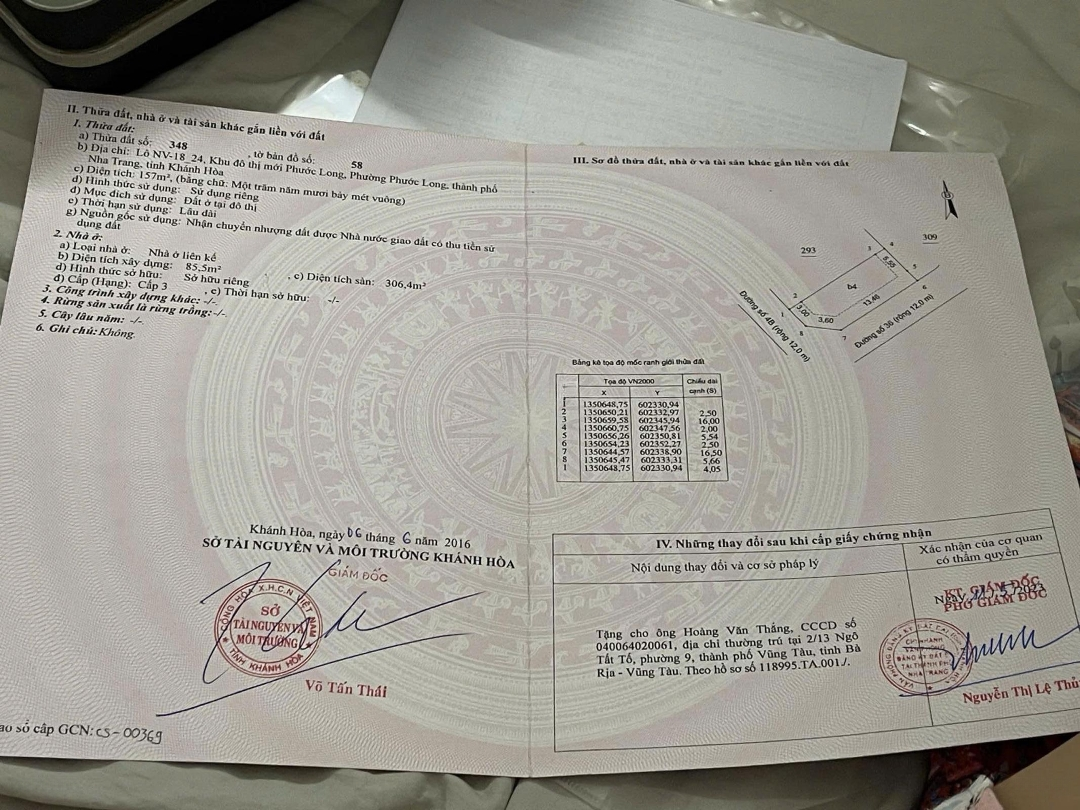 II. Thửa đất, nhà ở và tài sản khác gắn liền với đất
1. Thửa đất:
a) Thửa đất số: 348 , tờ bản đồ số: 58
b) Địa chỉ: Lô NV-18_24, Khu đô thị mới Phước Long, Phường Phước Long, thành phố
Nha Trang, tỉnh Khánh Hòa
c) Diện tích: 157m², (bằng chữ: Một trăm năm mươi bảy mét vuông)
d) Hình thức sử dụng: Sử dụng riêng
đ) Mục đích sử dụng: Đất ở tại đô thị
e) Thời hạn sử dụng: Lâu dài
g) Nguồn gốc sử dụng: Nhận chuyển nhượng đất được Nhà nước giao đất có thu tiền sử
dụng đất
2. Nhà ở:
a) Loại nhà ở: Nhà ở liên kế
b) Diện tích xây dựng: 85,5m² , c) Diện tích sàn: 306,4m²
d) Hình thức sở hữu: Sở hữu riêng
đ) Cấp (Hạng): Cấp 3 , e) Thời hạn sở hữu: -/-
3. Công trình xây dựng khác: -/-
4. Rừng sản xuất là rừng trồng:-/-
5. Cây lâu năm: -/-
6. Ghi chú: Không.
Khánh Hòa, ngày 06 tháng 6 năm 2016
SỞ TÀI NGUYÊN VÀ MÔI TRƯỜNG KHÁNH HÒA
GIÁM ĐỐC
CỘNG HÒA X.H.C.N VIỆT NAM
SỞ
TÀI NGUYÊN VÀ
MÔI TRƯỜNG
TỈNH KHÁNH HÒA
Võ Tấn Thái
ao sổ cấp GCN: CS-00369
III. Sơ đồ thửa đất, nhà ở và tài sản khác gắn liền với đất
B
293
309
3
4
5
6
7
8
1
2
5,50
b4
13,46
3,00
3,60
Đường số 4B (rộng 12,0 m)
Đường số 36 (rộng 12,0 m)
Bảng kê tọa độ mốc ranh giới thửa đất
Tọa độ VN2000 Chiều dài
X Y cạnh (S)
1 1350648,75 602330,94
2 1350650,21 602332,97 2,50
3 1350659,58 602345,94 16,00
4 1350660,75 602347,56 2,00
5 1350656,26 602350,81 5,54
6 1350654,23 602352,27 2,50
7 1350644,57 602338,90 16,50
8 1350645,47 602333,31 5,66
1 1350648,75 602330,94 4,05
IV. Những thay đổi sau khi cấp giấy chứng nhận
Nội dung thay đổi và cơ sở pháp lý
Xác nhận của cơ quan
có thẩm quyền
Tặng cho ông Hoàng Văn Thắng, CCCD số
040064020061, địa chỉ thường trú tại 2/13 Ngô
Tất Tố, phường 9, thành phố Vũng Tàu, tỉnh Bà
Rịa - Vũng Tàu. Theo hồ sơ số 118995.TA.001/.
KT. GIÁM ĐỐC
PHÓ GIÁM ĐỐC
CHI NHÁNH
VĂN PHÒNG
ĐĂNG KÝ ĐẤT ĐAI
TẠI THÀNH PHỐ
NHA TRANG
Nguyễn Thị Lệ